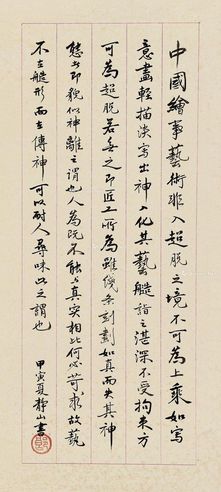 中國繪事藝術非入超脫之境不可為上乘如寫
意畫輕描淡寫出神入化其藝能詣之湛深不受拘束方
可為超脫若妄之即匠工所為雖纖毫刻劃如真而失其神
態者即貌似神離之謂也人為既不能與真實相比何必苛求故藝
不在能形而在傳神可以耐人尋味此之謂也
甲寅夏靜山書